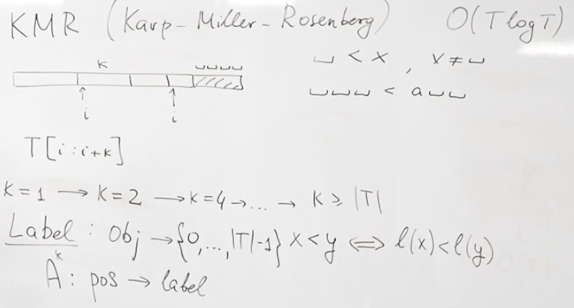 KMR (Karp-Miller-Rosenberg) O(TlogT)
k ␣␣␣␣ ␣ < x , x ≠ ␣
␣␣␣ < a␣␣
i i
T[i:i+k]
k=1 → k=2 → k=4 → ... → k ⩾ |T|
Label : Obj → {0,...,|T|-1} x<y ⟺ l(x)<l(y)
Aᵏ: pos → label